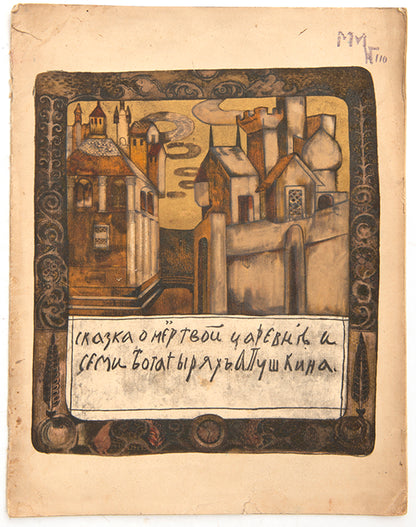 110
сказка о мёртвой царевнѣ и
семи Богатыряхъ А Пушкина.